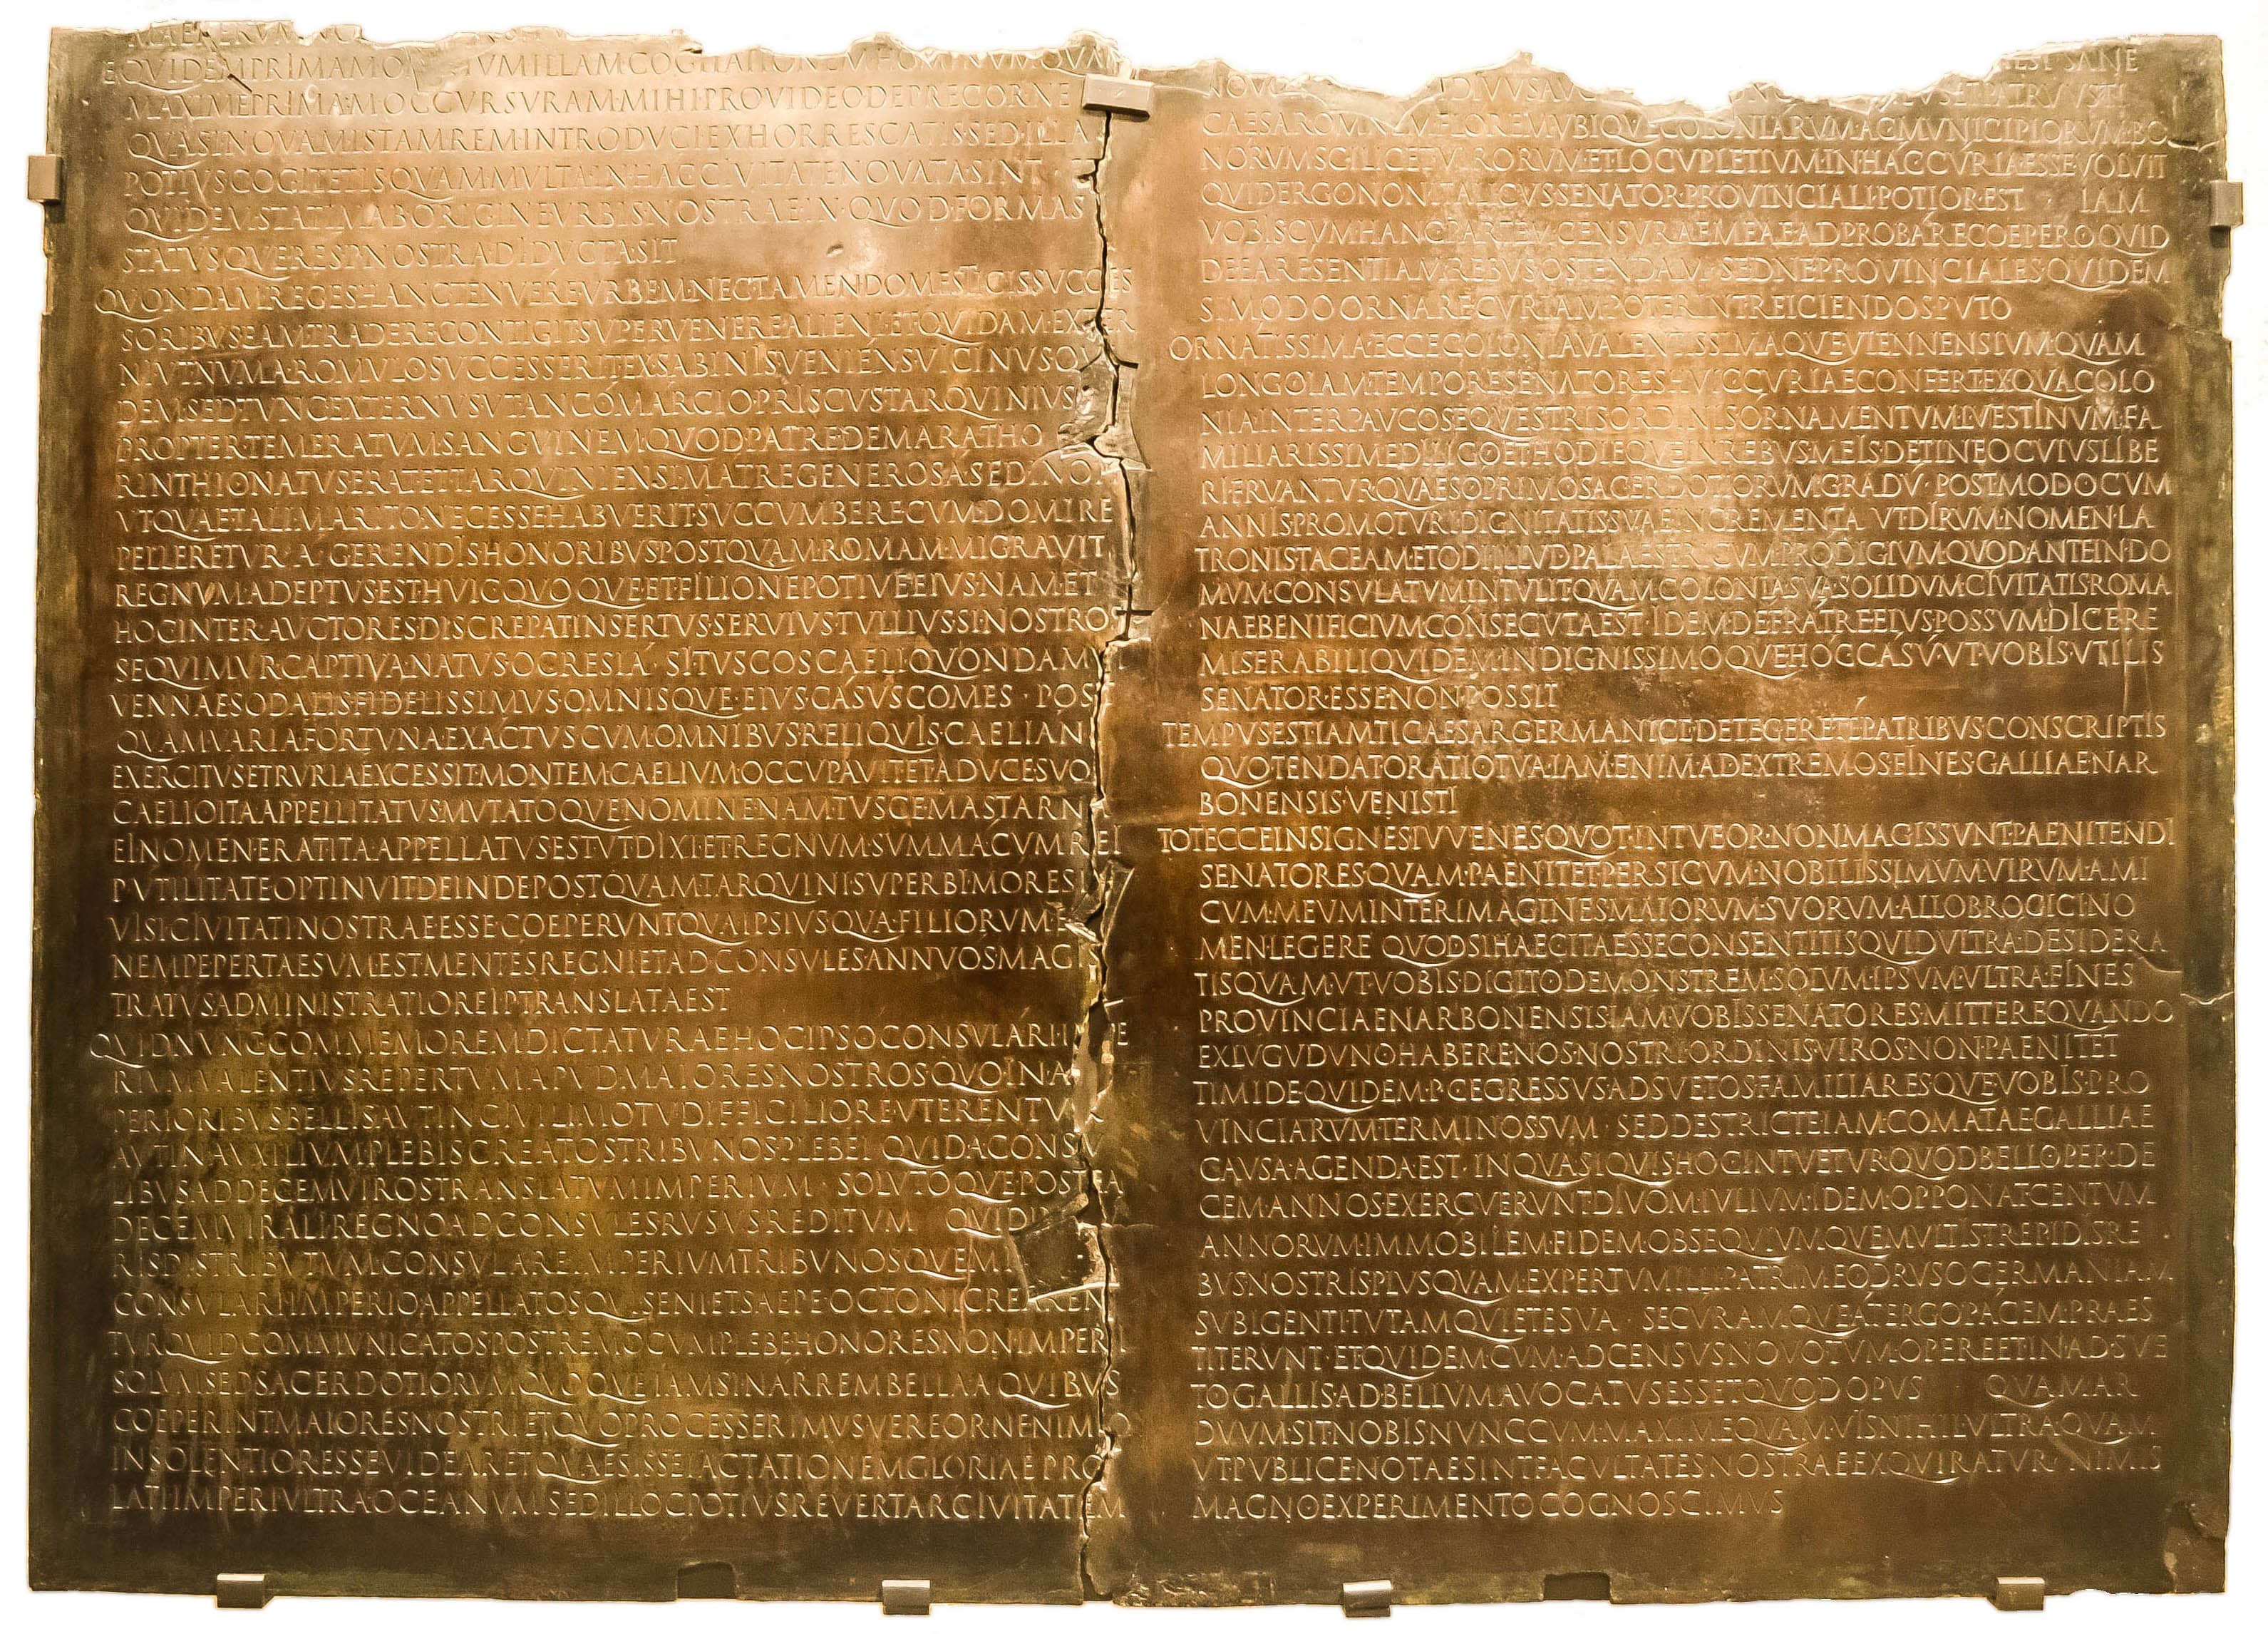 MAE RERVM
EQVIDEM PRIMAM OMNIVM ILLAM COGITATIONEM HOMINVM QVAM
MAXIME PRIMAM OCCVRSVRAM MIHI PROVIDEO DEPRECOR NE
QVASI NOVAM ISTAM REM INTRODVCI EXHORRESCATIS SED ILLA
POTIVS COGITETIS QVAM MVLTA IN HAC CIVITATE NOVATA SINT
QVIDEM STATIM AB ORIGINE VRBIS NOSTRAE IN QVOD FORMAS
STATVSQVE RES P NOSTRA DIDVCTA SIT
QVONDAM REGES HANC TENVERE VRBEM NEC TAMEN DOMESTICIS SVCCES
SORIBVS EAM TRADERE CONTIGIT SVPERVENERE ALIENI ET QVIDAM EXTER
NI VT NVMA ROMVLO SVCCESSERIT EX SABINIS VENIENS VICINVS
DEM SED TVNC EXTERNVS VT ANCO MARCIO PRISCVS TARQVINIVS
PROPTER TEMERATVM SANGVINEM QVOD PATRE DEMARATHO
RINTHIO NATVS ERAT ET TARQVINIENSI MATRE GENEROSA SED INOP
VT QVAE TALI MARITO NECESSE HABVERIT SVCCVMBERE CVM DOMI RE
PELLERETVR A GERENDIS HONORIBVS POSTQVAM ROMAM MIGRAVIT
REGNVM ADEPTVS EST HVIC QVOQVE ET FILIO NEPOTIVE EIVS NAM ET
HOC INTER AVCTORES DISCREPAT INSERTVS SERVIVS TVLLIVS SI NOSTROS
SEQVIMVR CAPTIVA NATVS OCRESIA SI TVSCOS CAELI QVONDAM VI
VENNAE SODALIS FIDELISSIMVS OMNISQVE EIVS CASVS COMES POST
QVAM VARIA FORTVNA EXACTVS CVM OMNIBVS RELIQVIS CAELIANI
EXERCITVS ETRVRIA EXCESSIT MONTEM CAELIVM OCCVPAVIT ET A DVCE SVO
CAELIO ITA APPELLITATVS MVTATOQVE NOMINE NAM TVSCE MASTARNA
EI NOMEN ERAT ITA APPELLATVS EST VT DIXI ET REGNVM SVMMA CVM REI
P VTILITATE OPTINVIT DEINDE POSTQVAM TARQVINI SVPERBI MORES
VISI CIVITATI NOSTRAE ESSE COEPERVNT QVA IPSIVS QVA FILIORVM
NEMPE PERTAESVM EST MENTES REGNI ET AD CONSVLES ANNVOS MAGIS
TRATVS ADMINISTRATIO REI P TRANSLATA EST
QVID NVNC COMMEMOREM DICTATVRAE HOC IPSO CONSVLARI IMPE
RIVM VALENTIVS REPERTVM APVD MAIORES NOSTROS QVO IN AS
PERIORIBVS BELLIS AVT IN CIVILI MOTV DIFFICILIORE VTERENTVR
AVT IN AVXILIVM PLEBIS CREATOS TRIBVNOS PLEBEI QVID A CONSV
LIBVS AD DECEMVIROS TRANSLATVM IMPERIVM SOLVTOQVE POSTEA
DECEMVIRALI REGNO AD CONSVLES RVSVS REDITVM QVID
RIS DISTRIBVTVM CONSVLARE IMPERIVM TRIBVNOSQVE
CONSVLARI IMPERIO APPELLATOS QVI SENI ET SAEPE OCTONI CREAREN
TVR QVID COMMVNICATOS POSTREMO CVM PLEBE HONORES NON IMPERI
SOLVM SED SACERDOTIORVM QVOQVE IAM SI NARREM BELLA A QVIBVS
COEPERINT MAIORES NOSTRI ET QVO PROCESSERIMVS VEREOR NE NIMIO
INSOLENTIOR ESSE VIDEAR ET QVAESISSE IACTATIONEM GLORIAE PRO
LATI IMPERI VLTRA OCEANVM SED ILLOC POTIVS REVERTAR CIVITATEM
EST SANE
NOVO DIVVS AVG ET PATRVVS TI
CAESAR OMNEM FLOREM VBIQVE COLONIARVM AC MVNICIPIORVM BO
NORVM SCILICET VIRORVM ET LOCVPLETIVM IN HAC CVRIA ESSE VOLVIT
QVID ERGO NON ITALICVS SENATOR PROVINCIALI POTIOR EST IAM
VOBIS CVM HANC PARTEM CENSVRAE MEAE ADPROBARE COEPERO QVID
DE EA RE SENTIAM REBVS OSTENDAM SED NE PROVINCIALES QVIDEM
SI MODO ORNARE CVRIAM POTERINT REICIENDOS PVTO
ORNATISSIMA ECCE COLONIA VALENTISSIMAQVE VIENNENSIVM QVAM
LONGO IAM TEMPORE SENATORES HVIC CVRIAE CONFERT EX QVA COLO
NIA INTER PAVCOS EQVESTRIS ORDINIS ORNAMENTVM L VESTINVM FA
MILIARISSIME DILIGO ET HODIEQVE IN REBVS MEIS DETINEO CVIVS LIBE
RI FRVANTVR QVAESO PRIMO SACERDOTIORVM GRADV POST MODO CVM
ANNIS PROMOTVRI DIGNITATIS SVAE INCREMENTA VT DIRVM NOMEN LA
TRONIS TACEAM ET ODI ILLVD PALAESTRICVM PRODIGIVM QVOD ANTE IN DO
MVM CONSVLATVM INTVLIT QVAM COLONIA SVA SOLIDVM CIVITATIS ROMA
NAE BENIFICIVM CONSECVTA EST IDEM DE FRATRE EIVS POSSVM DICERE
MISERABILI QVIDEM INDIGNISSIMOQVE HOC CASV VT VOBIS VTILIS
SENATOR ESSE NON POSSIT
TEMPVS EST IAM TI CAESAR GERMANICE DETEGERE TE PATRIBVS CONSCRIPTIS
QVO TENDAT ORATIO TVA IAM ENIM AD EXTREMOS FINES GALLIAE NAR
BONENSIS VENISTI
TOT ECCE INSIGNES IVVENES QVOT INTVEOR NON MAGIS SVNT PAENITENDI
SENATORES QVAM PAENITET PERSICVM NOBILISSIMVM VIRVM AMI
CVM MEVM INTER IMAGINES MAIORVM SVORVM ALLOBROGICI NO
MEN LEGERE QVOD SI HAEC ITA ESSE CONSENTITIS QVID VLTRA DESIDERA
TIS QVAM VT VOBIS DIGITO DEMONSTREM SOLVM IPSVM VLTRA FINES
PROVINCIAE NARBONENSIS IAM VOBIS SENATORES MITTERE QVANDO
EX LVGVDVNO HABERE NOS NOSTRI ORDINIS VIROS NON PAENITET
TIMIDE QVIDEM P C EGRESSVS ADSVETOS FAMILIARESQVE VOBIS PRO
VINCIARVM TERMINOS SVM SED DESTRICTE IAM COMATAE GALLIAE
CAVSA AGENDA EST IN QVA SI QVIS HOC INTVETVR QVOD BELLO PER DE
CEM ANNOS EXERCVERVNT DIVOM IVLIVM IDEM OPPONAT CENTVM
ANNORVM IMMOBILEM FIDEM OBSEQVIVMQVE MVLTIS TREPIDIS RE
BVS NOSTRIS PLVSQVAM EXPERTVM ILLI PATRI MEO DRVSO GERMANIAM
SVBIGENTI TVTAM QVIETE SVA SECVRAMQVE A TERGO PACEM PRAES
TITERVNT ET QVIDEM CVM AD CENSVS NOVO TVM OPERE ET INADSVE
TO GALLIS AD BELLVM AVOCATVS ESSET QVOD OPVS QVAM AR
DVVM SIT NOBIS NVNC CVM MAXIME QVAMVIS NIHIL VLTRA QVAM
VT PVBLICE NOTAE SINT FACVLTATES NOSTRAE EXQVIRATVR NIMIS
MAGNO EXPERIMENTO COGNOSCIMVS